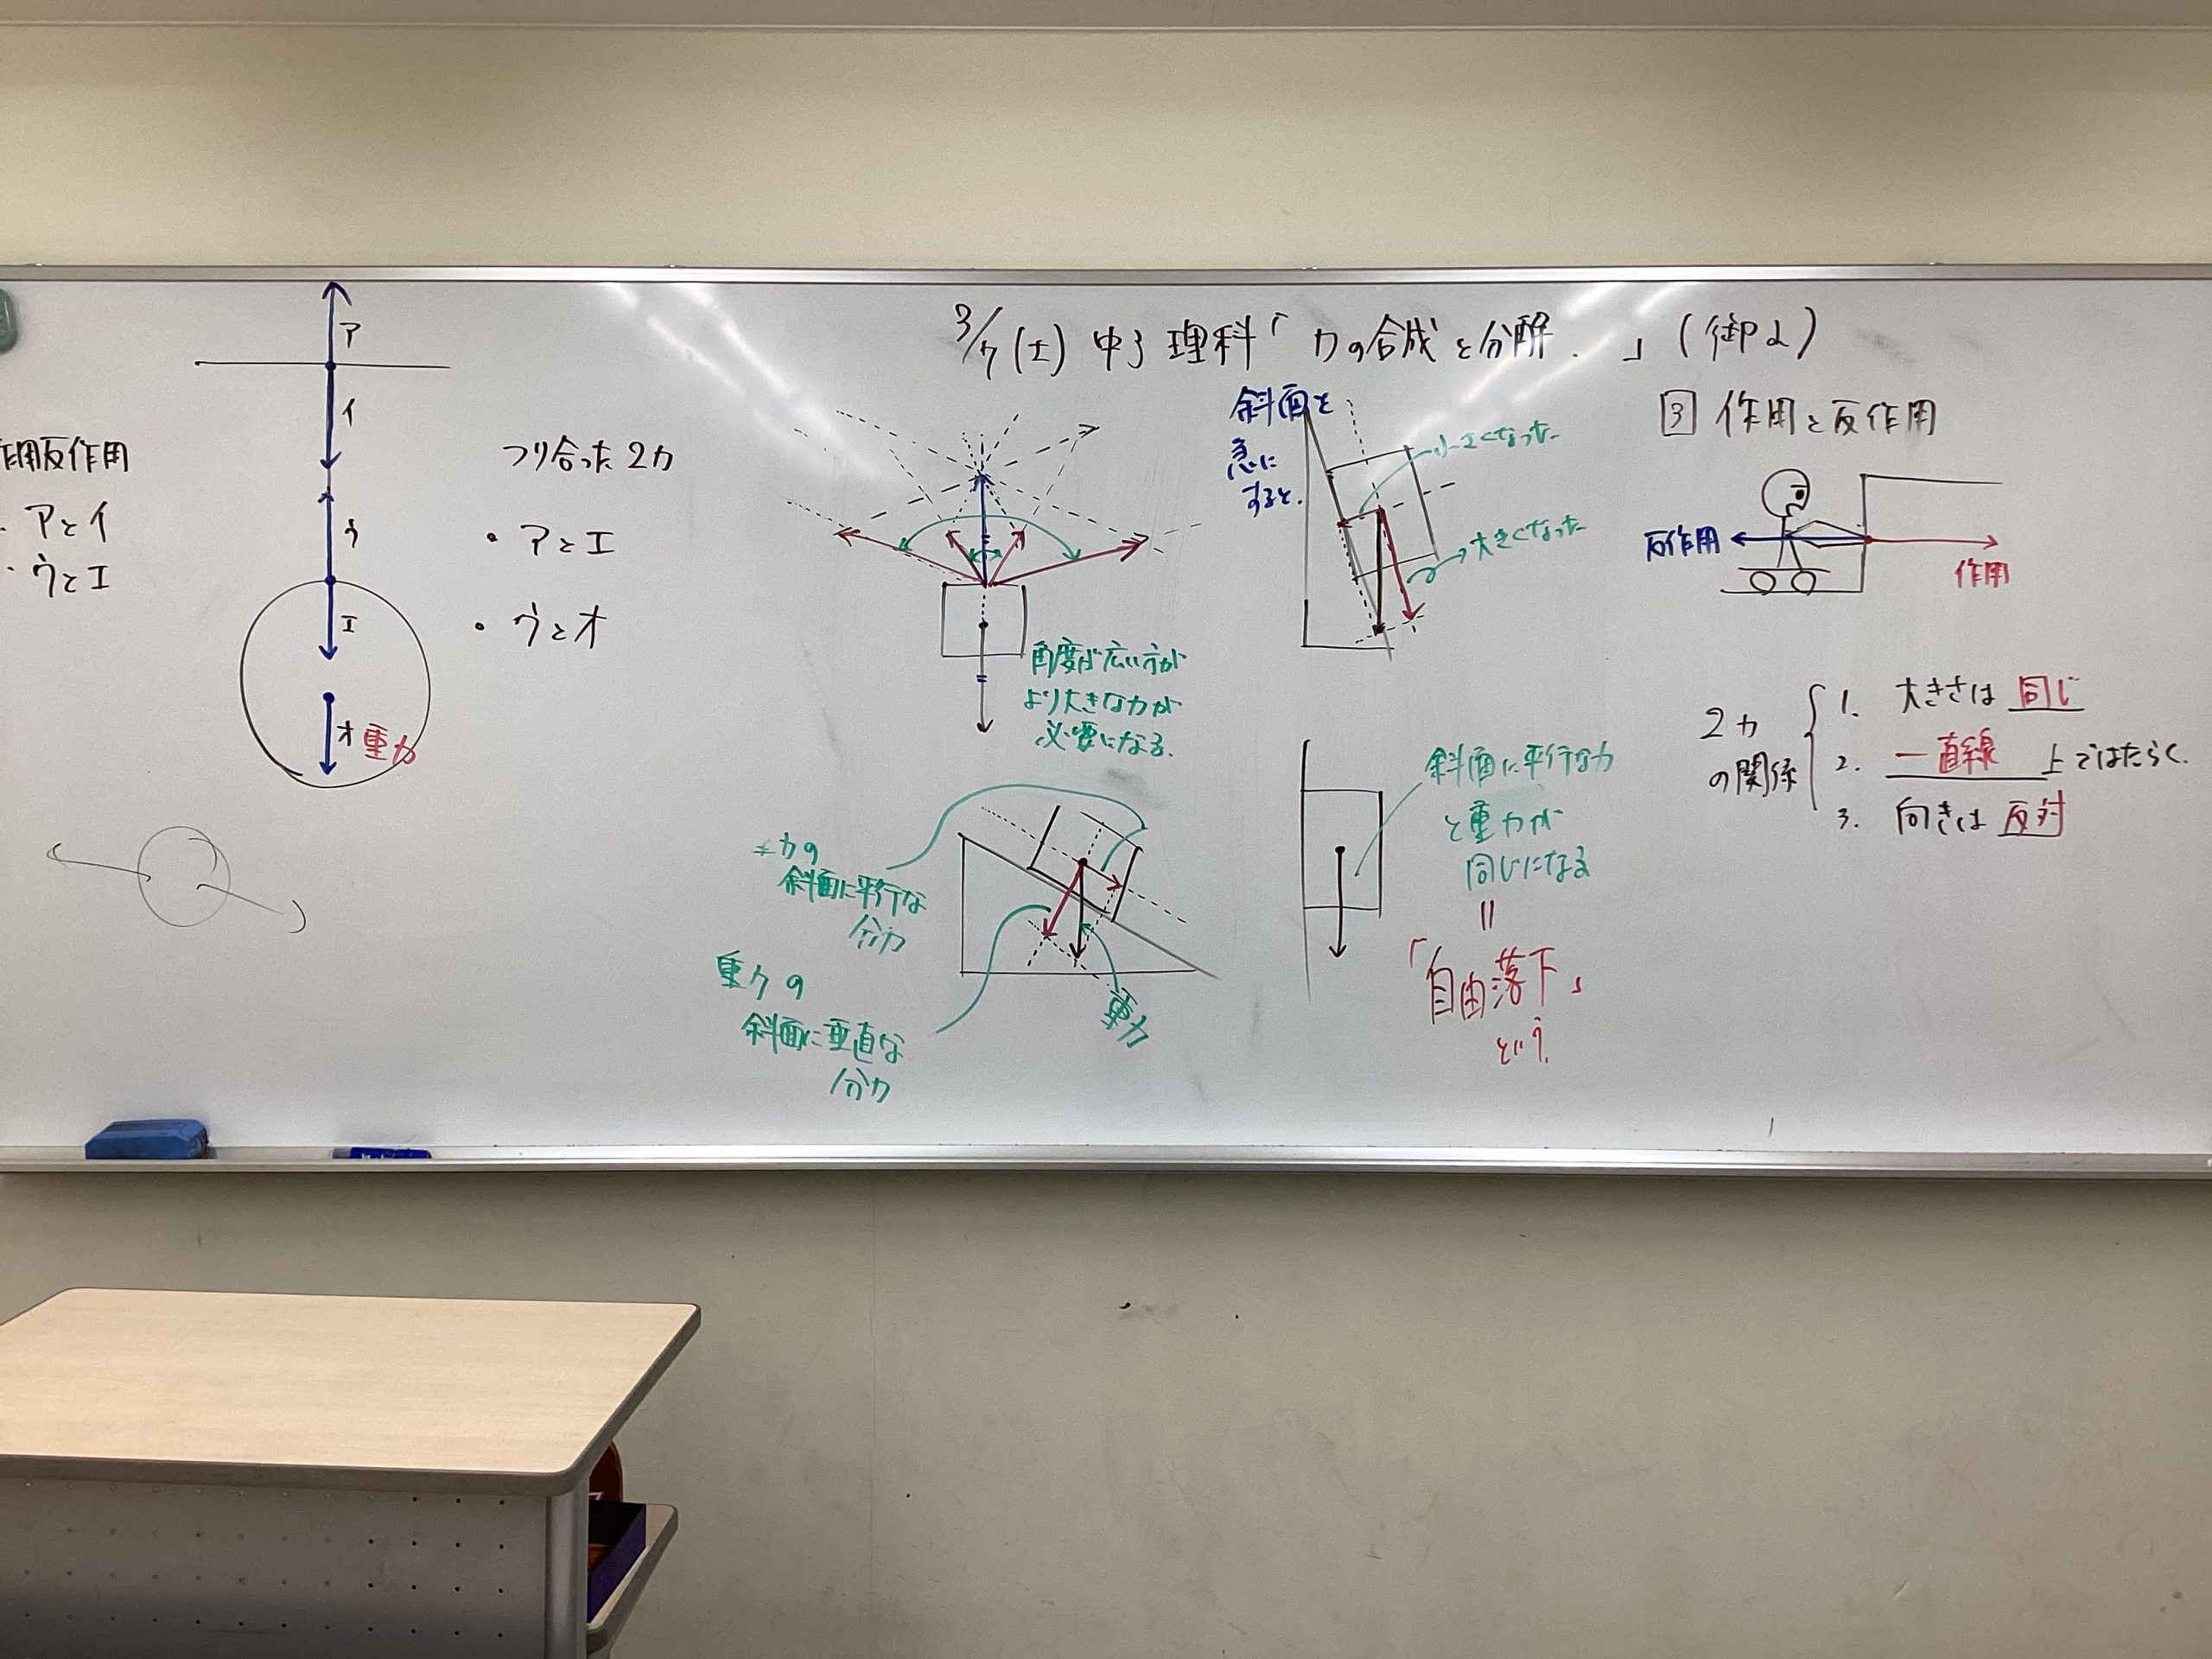 3/7(土) 中3 理科「力の合成と分解.」(御よ)
作用反作用
・アとイ
・ウとエ
ア
イ
ウ
エ
オ 重力
つり合った2力
・アとエ
・ウとオ
角度が広い方が
より大きな力が
必要になる.
力の
斜面に平行な
分力
重力の
斜面に垂直な
分力
重力
斜面を
急に
すると.
小さくなった
大きくなった
斜面に平行な力
と重力が
同じになる
=
「自由落下」
という.
3 作用と反作用
反作用
作用
2力
の関係
1. 大きさは 同じ
2. 一直線 上ではたらく.
3. 向きは 反対